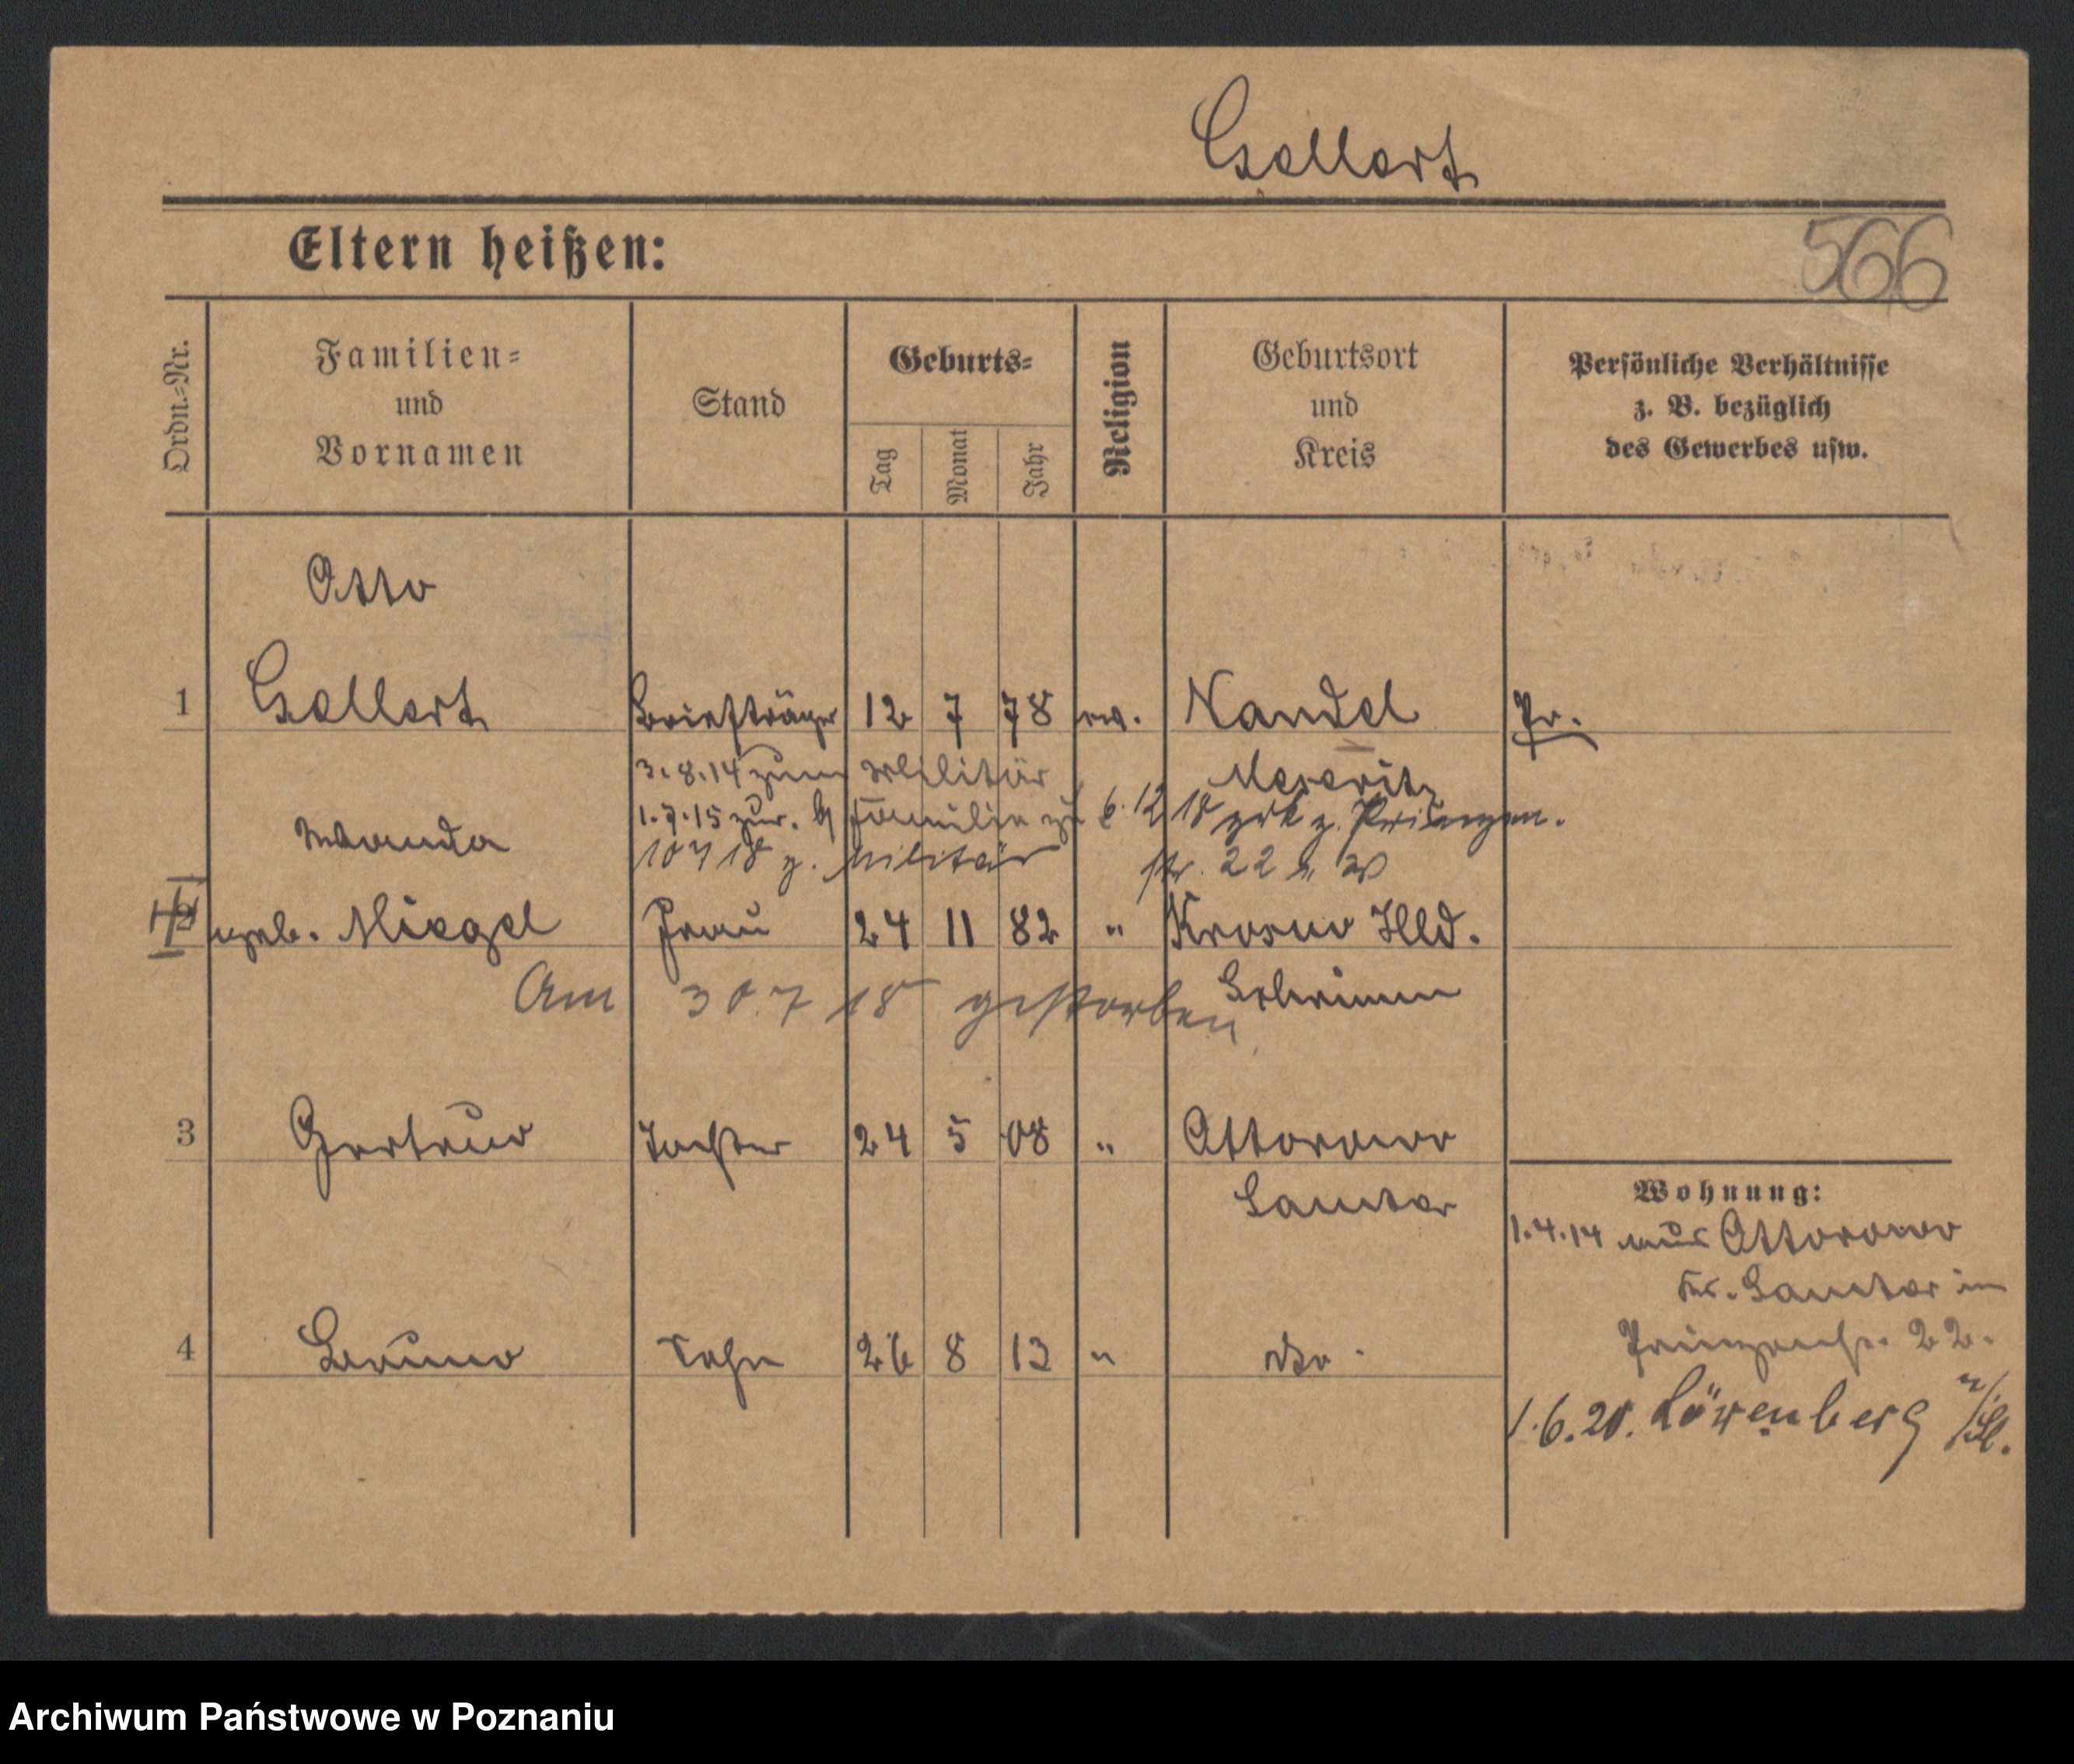 Gellert
Eltern heißen:
566
Ordn.=Nr.
Familien=
und
Vornamen
Stand
Geburts=
Tag
Monat
Jahr
Religion
Geburtsort
und
Kreis
Persönliche Verhältnisse
z. B. bezüglich
des Gewerbes usw.
Otto
1 Gellert Briefträger 12 7 78 ev. Kandel Pr.
3.8.14 zum Militär Meseritz
1.7.15 zur. Familie 6.12 18 zrk z. Prinzen.
Wanda 10 7 18 z. Militär str. 22
2 geb. Miegel Frau 24 11 82 " Krosno Hld.
Am 30.7 18 gestorben Schrimm
3 Gertrud Tochter 24 5 08 " Ottorowo
Samter
Wohnung:
1.4.14 aus Ottorowo
Kr. Samter in
Prinzenstr. 22.
4 Bruno Sohn 26 8 13 " do.
1.6.20. Löwenberg /Sl.
Archiwum Państwowe w Poznaniu